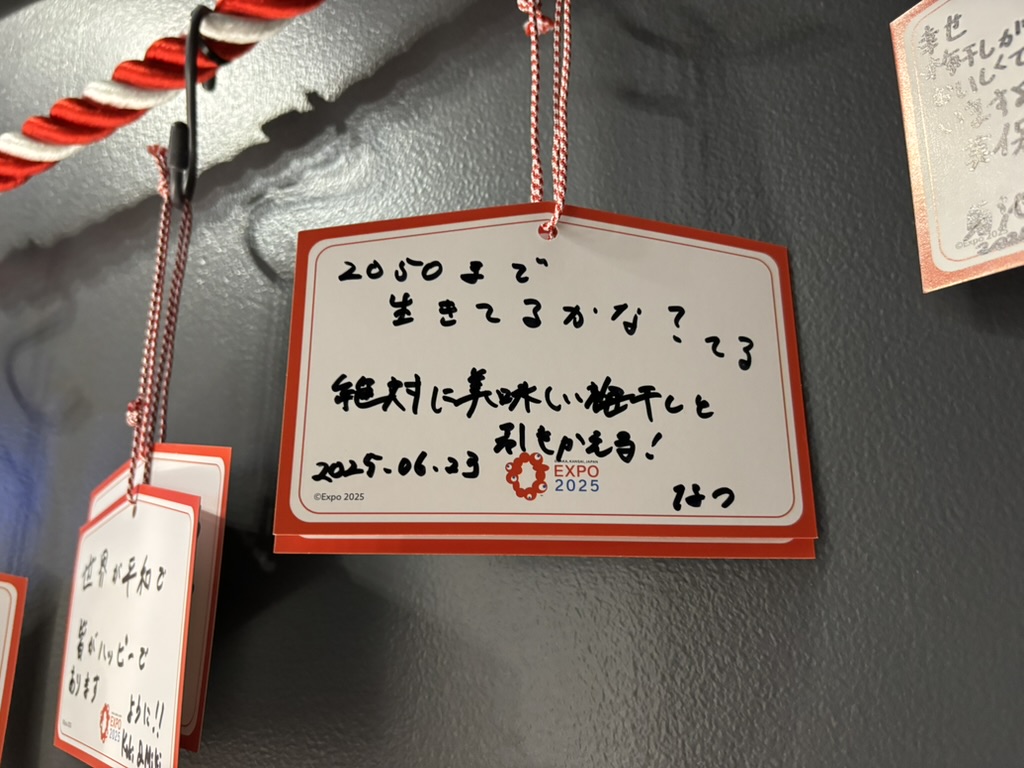 2050まで
生きてるかな?
てる
絶対に美味しい梅干しと
引きかえる!
2025.06.23
OSAKA, KANSAI, JAPAN
EXPO
2025
©Expo 2025
なつ
世界が平和で
皆がハッピーで
あります
ように!!
EXPO
2025
幸せ
梅干しが
いしくて
保
©Expo 202